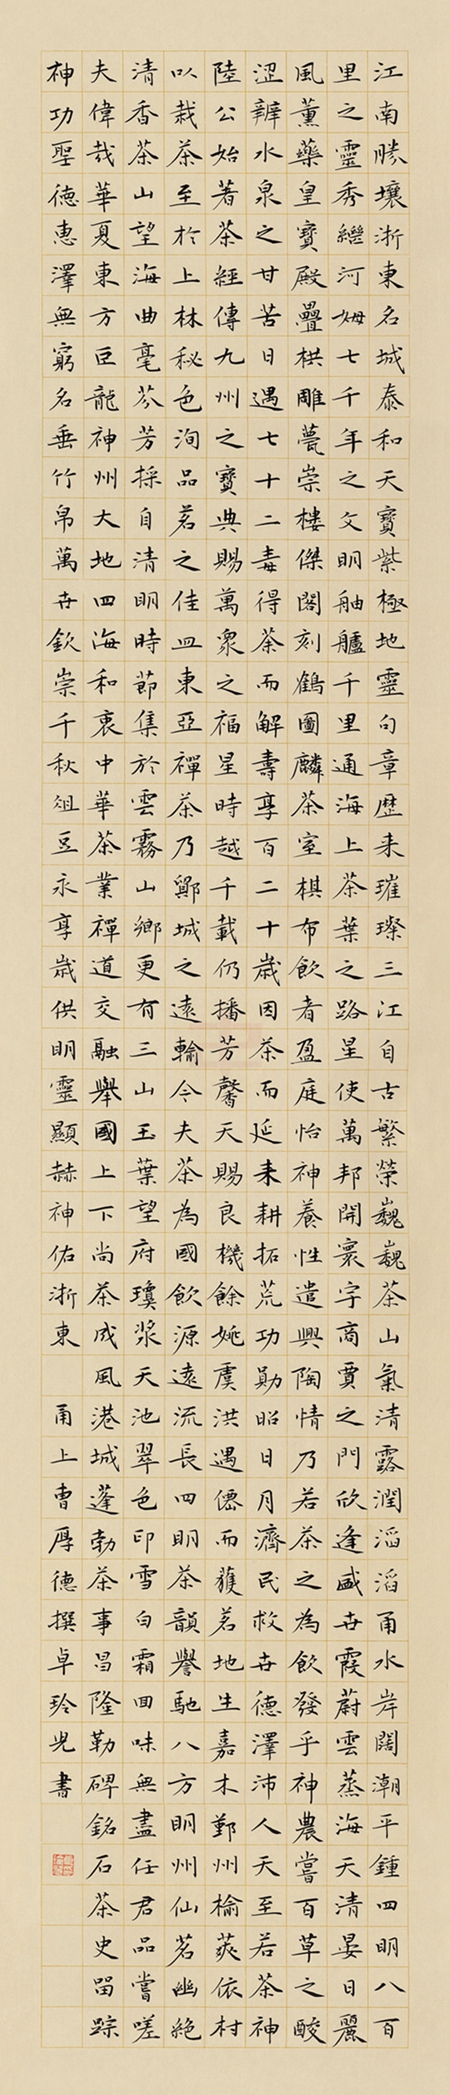 江南勝壤浙東名城泰和天寶紫極地靈句章歷来璀璨三江自古繁榮巍巍茶山氣清露潤滔滔甬水岸闊潮平鍾四明八百
里之靈秀繼河姆七千年之文明舳艫千里通海上茶葉之路星使萬邦開寰宇商賈之門欣逢盛世霞蔚雲蒸海天清晏日麗
風薰藥皇寶殿疊栱雕甍崇樓傑閣刻鶴圖麟茶室棋布飲者盈庭怡神養性遣興陶情乃若茶之為飲發乎神農嘗百草之酸
澀辨水泉之甘苦日遇七十二毒得茶而解壽享百二十歲因茶而延耒耕拓荒功勛昭日月濟民救世德澤沛人天至若茶神
陸公始著茶經傳九州之寶典賜萬衆之福星時越千載仍播芳馨天賜良機餘姚虞洪遇僊而獲茗地生嘉木鄞州榆莢依村
以栽茶至於上林秘色洵品茗之佳皿東亞禪茶乃鄮城之遠輸今夫茶為國飲源遠流長四明茶韻譽馳八方明州仙茗幽絕
清香茶山望海曲毫芬芳採自清明時節集於雲霧山鄉更有三山玉葉望府瓊漿天池翠色印雪白霜回味無盡任君品嘗嗟
夫偉哉華夏東方巨龍神州大地四海和衷中華茶業禪道交融舉國上下尚茶成風港城蓬勃茶事昌隆勒碑銘石茶史留踪
神功聖德惠澤無窮名垂竹帛萬世欽崇千秋俎豆永享歲供明靈顯赫神佑浙東 甬上曹厚德撰卓玲光書